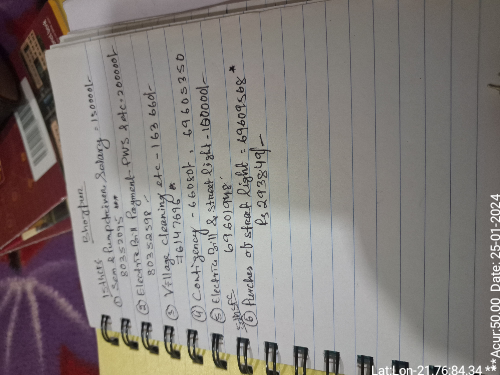 Bhogpur
15th SFC
① Swm & Pump driver Salary = 150000/-
80352095 **
② Electric Bill Payment - PWS & etc = 200000/-
80352598 -
③ Village cleaning etc - 163660/-
76147696 *
④ Contigency - 66080/- , 69605350
⑤ Electric Bill & street light - 150000/-
69601948
5th SFC
⑥ Purches of street light = 69609568 *
Rs 293849/-
Lat:Lon-21.76:84.34 ** Acur:50.00 Date: 25-01-2024